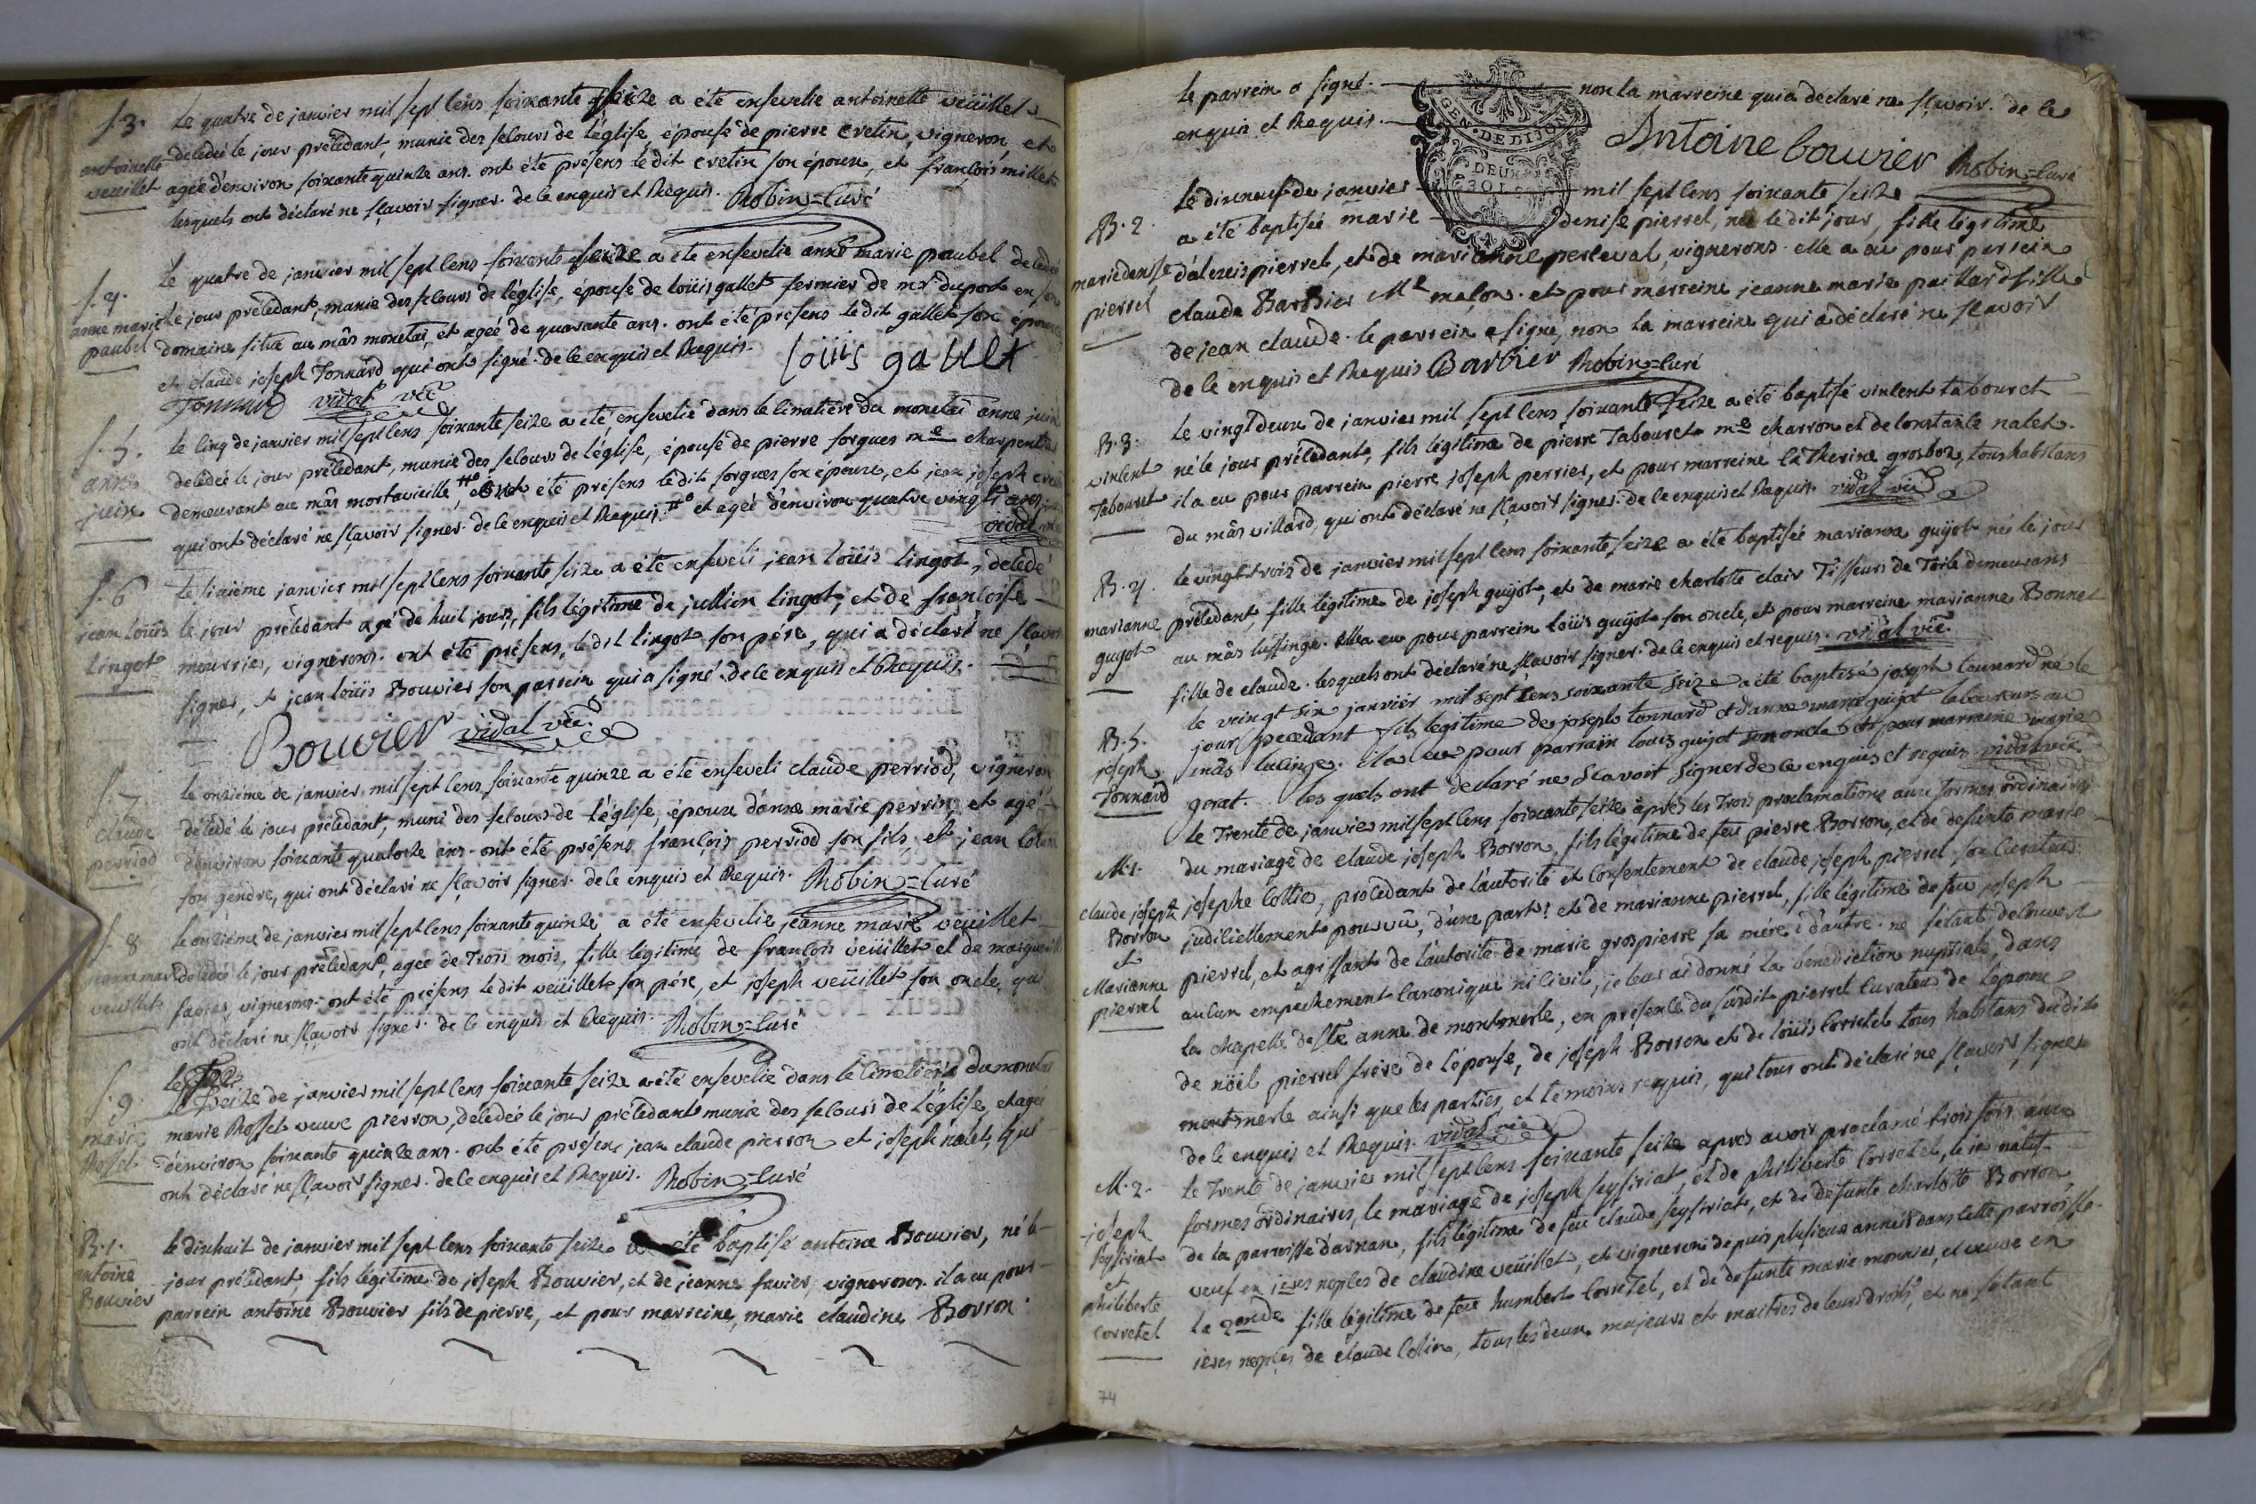 S. 3.
antoinette
veuillet
Le quatre de janvier mil sept cens soixante seize a été ensevelie antoinette veüillet
décédée le jour précédant, munie des secours de l'église, épouse de pierre cretin, vigneron, et
agée d'environ soixante quinze ans. ont été présens le dit cretin son époux, et françois millet
lesquels ont déclaré ne sçavoir signer. de ce enquis et Requis. Robin = curé
S. 4.
anne marie
paubel
Le quatre de janvier mil sept cens soixante seize a été ensevelie anne marie paubel décédée
le jour précédant, munie des secours de l'église, épouse de loüis gallet fermier de mr. duport en son
domaine situé au mâs monetaï, et agée de quarante ans. ont été présens le dit gallet son époux
et claude joseph Tonnard qui ont signé. de ce enquis et Requis. loüis gallet
Tonnard vidal vic
S. 5.
anne
juin
Le cinq de janvier mil sept cens soixante seize a été ensevelie dans le cimetière du monetaï anne juin
décédée le jour précédant, munie des secours de l'église, épouse de pierre forgues me charpentier
demeurant au mâs mortavieille, et ont été présens le dit forgues son époux, et jean joseph
qui ont déclaré ne sçavoir signer. de ce enquis et Requis. et agée d'environ quatre vingts ans.
vidal
S. 6
jean loüis
lingot
Le sixième janvier mil sept cens soixante seize a été enseveli jean loüis lingot, décédé
le jour précédant agé de huit jours, fils légitime de jullien lingot, et de françoise
mourrier, vignerons. ont été présens, le dit lingot son père, qui a déclaré ne sçavoir
signer, et jean loüis Bouvier son parrein qui a signé. de ce enquis et Requis.
Bouvier vidal vic
S. 7
claude
perriod
Le onzième de janvier mil sept cens soixante quinze a été enseveli claude perriod, vigneron
décédé le jour précédant, muni des secours de l'église, époux d'anne marie perrin, et agé
d'environ soixante quatorze ans. ont été présens françois perriod son fils et jean colin
son gendre, qui ont déclaré ne sçavoir signer. de ce enquis et Requis. Robin = curé
S. 8
jeanne marie
veuillet
Le onzième de janvier mil sept cens soixante quinze a été ensevelie jeanne marie veüillet
décédée le jour précédant, agée de trois mois, fille légitime de françois veüillet et de
favier, vignerons. ont été présens le dit veüillet son père, et joseph veüillet son oncle, qui
ont déclaré ne sçavoir signer. de ce enquis et Requis. Robin = curé
S. 9.
marie
Rosset
Le seize de janvier mil sept cens soixante seize a été ensevelie dans le cimetière du monetaï
marie Rosset veuve pierron, décédée le jour précédant munie des secours de l'église, et agée
d'environ soixante quinze ans. ont été présens jean claude pierron et joseph nalet, qui
ont déclaré ne sçavoir signer. de ce enquis et Requis. Robin = curé
B. 1.
antoine
Bouvier
Le dixhuit de janvier mil sept cens soixante seize a été baptisé antoine Bouvier, né le
jour précédant fils légitime de joseph Bouvier, et de jeanne favier, vignerons. il a eu pour
parrein antoine Bouvier fils de pierre, et pour marreine, marie claudine Borron.
le parrein a signé. non la marreine qui a déclaré ne sçavoir. de ce
enquis et Requis.
GEN. DE DIJON
DEUX
SOLS
Antoine bouvier Robin = curé
B. 2.
marie denise
pierrel
Le dixneuf de janvier mil sept cens soixante seize
a été baptisée marie denise pierrel, née le dit jour, fille légitime
d'alexis pierrel, et de marianne perceval, vignerons. elle a eu pour parrein
claude Barbier Me maçon. et pour marreine jeanne marie paillard fille
de jean claude. le parrein a signé, non la marreine qui a déclaré ne sçavoir
de ce enquis et Requis Barbier Robin = curé
B. 3.
vincent
Tabouret
Le vingt deux de janvier mil sept cens soixante seize a été baptisé vincent tabouret
né le jour précédant, fils légitime de pierre Tabouret me charron et de constance nalet.
il a eu pour parrein pierre joseph perrier, et pour marreine catherine grosbon, tous habitans
du mâs villard, qui ont déclaré ne sçavoir signer. de ce enquis et Requis. vidal vic
B. 4.
marianne
guyot
Le vingt trois de janvier mil sept cens soixante seize a été baptisée marianne guÿot née le jour
précédant, fille légitime de joseph guÿot, et de marie charlotte clair Tisseurs de Toile demeurans
au mâs lussinge. elle a eu pour parrein loüis guÿot son oncle, et pour marreine marianne Bonnet
fille de claude. lesquels ont déclaré ne sçavoir signer. de ce enquis et requis. vidal vic
B. 5.
joseph
Tonnard
le vingt six janvier mil sept cens soixante seize a été baptisé joseph tonnard né le
jour precedant fils legitime de joseph tonnard et d'anne marie guijot laboureurs au
mâs lucinge. il a eu pour parrain louis guijot son oncle et pour marraine marie
goret. les quels ont declaré ne scavoir signer de ce enquis et requis vidal vic
M. 1.
claude joseph
Borron
et
Marianne
pierrel
Le Trente de janvier mil sept cens soixante seize après les Trois proclamations aux formes ordinaires
du mariage de claude joseph Borron, fils légitime de feu pierre Borron, et de defunte marie
josephe cottier, procédant de l'autorité et consentement de claude joseph pierrel son curateur
judiciellement pourvû, d'une part; et de marianne pierrel, fille légitime de feu joseph
pierrel, et agissant de l'autorité de marie grospierre sa mère d'autre. ne s'étant découvert
aucun empechement canonique ni civil, je leur ai donné la benediction nuptiale, dans
la chapelle de Ste anne de montmerle, en présence du susdit pierrel curateur de l'epoux,
de nöel pierrel frère de l'épouse, de joseph Borron et de loüis corretel tous habitans du dit
montmerle ainsi que les parties, et témoins requis, qui tous ont déclaré ne sçavoir signer
de ce enquis et Requis. vidal vic
M. 2.
joseph
seyssiriat
et
philiberte
corretel
Le Trente de janvier mil sept cens soixante seize après avoir proclamé trois fois aux
formes ordinaires, le mariage de joseph seyssiriat, et de philiberte corretel, le 1er natif
de la parroisse d'arnan, fils légitime de feu claude seyssiriat, et de defunte charlotte Borron,
veuf en 1eres noples de claudine veüillet, et vigneron depuis plusieurs années dans cette parroisse.
la 2onde fille légitime de feu humbert corretel, et de defunte marie monnier, et veuve en
1eres noples de claude colin, tous les deux majeurs et maitres de leurs droits, et ne s'étant
74